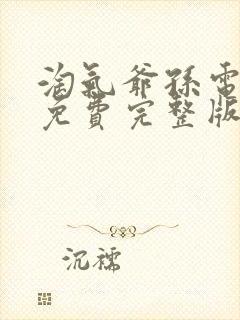 淘氣爺孫電
免費完整版
沉襦